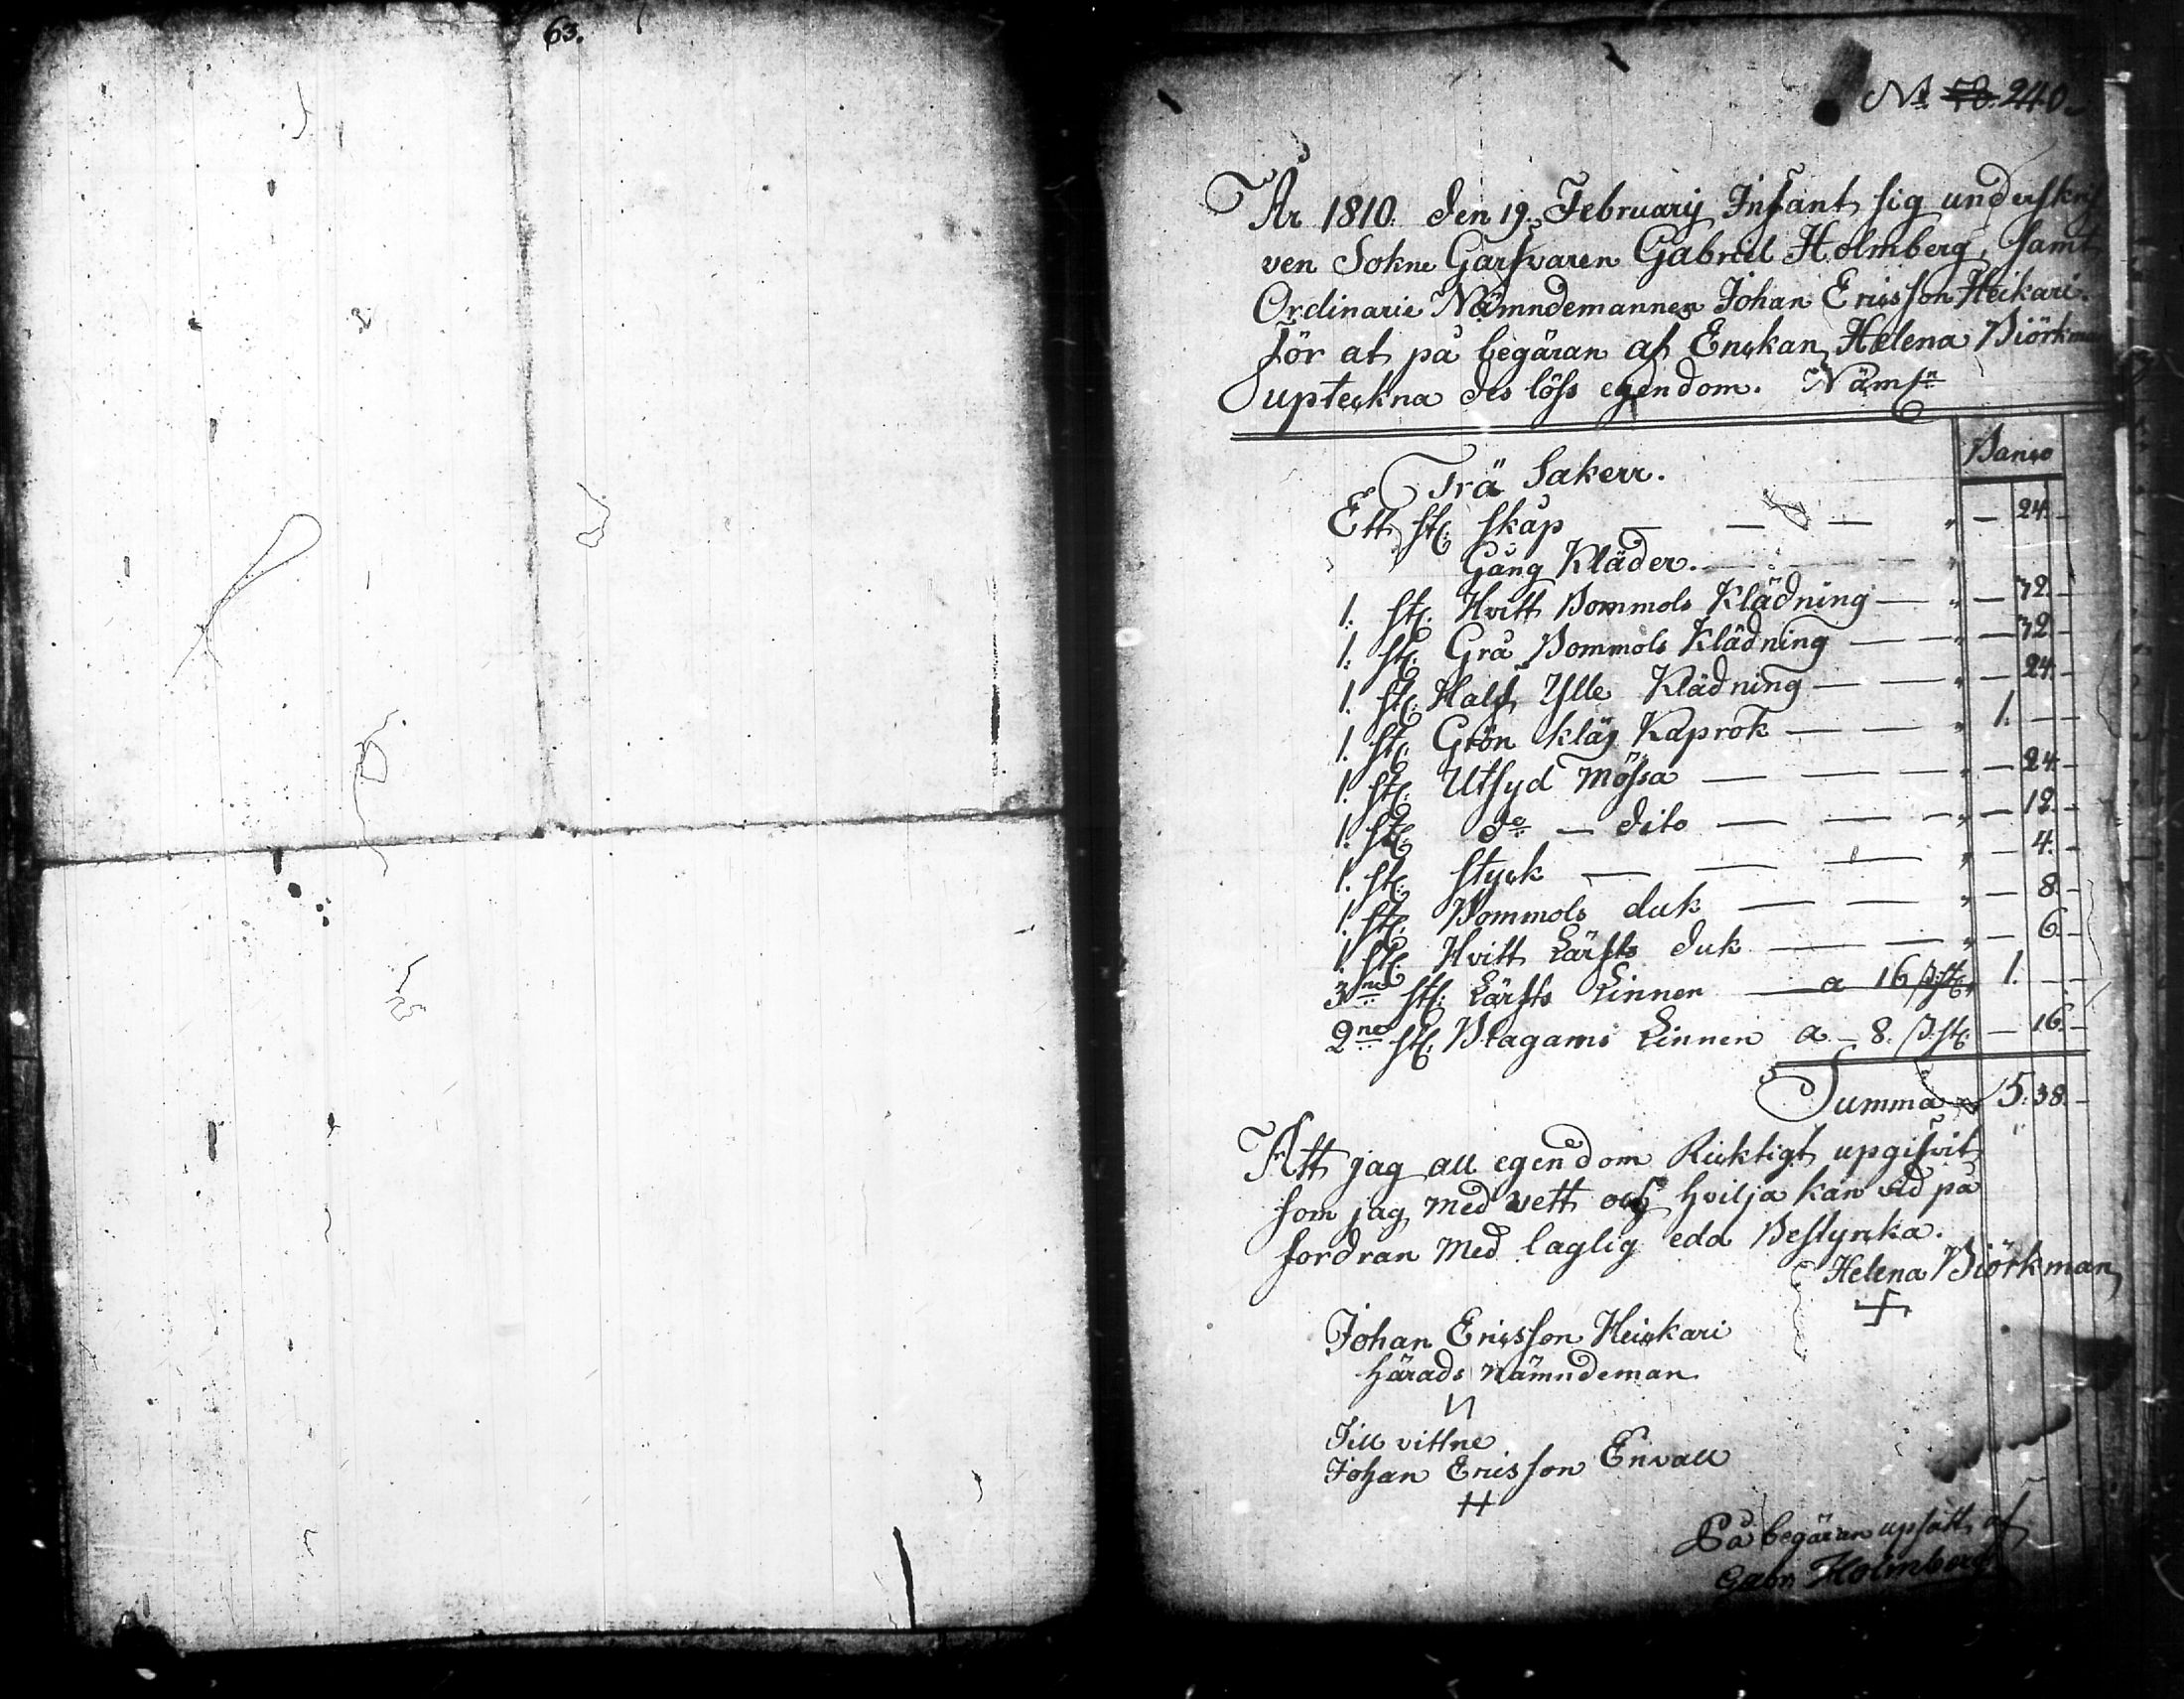 63.
No 78. 240.
År 1810. den 19. Februarij Infant sig underskrif
ven Sokne Garfvaren Gabriel Holmberg, samt
Ordinarie Nämndemannen Johan Ericsson Heikari.
för at på begäran af Enckan Helena Biörkman
upteckna des löss egendom. Näml:n
Banco
Trä Sakerr.
Ett st: skåp — — — " — 24. -
Gång Kläder.
1. st: Hvitt Bommols Klädning — " — 32. -
1. st: Grå Bommols Klädning — — " — 32 -
1. st: Half Ylle Klädning — — " — 24. -
1. st: Grön Kapråk — — — " 1. — -
1. st: Utsyd Mössa — — — " — 24. -
1. st: do — dito — — — " — 12. -
1. st: styck — — — " — 4. -
1. st: Bommols duk — — " — 8. -
1. st: Hvitt Lärfts duk — — " — 6. -
3ne st: Lärfts Linnen — a 16 ß st: 1. — -
2ne st: Blagarns Linnen a — 8. ß st: — 16. -
Summa 5. 38. -
Att jag all egendom Ricktigt upgifvit
som jag med vett och hvilja kan vid på
fordran med laglig edd Bestyrcka.
Helena Biörkman
Johan Ericsson Heickari
härads Nämndeman
Till vittne
Johan Ericsson Envall
På begäran upsatt af
Gabr Holmberg